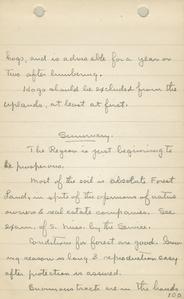 hogs, and is advisable for a year or
two after lumbering.
Hogs should be excluded from the
uplands, at least at first.
Summary.
The Region is just beginning to
be prosperous.
Most of the soil is absolute Forest
Land, in spite of the opinions of native
owners & real estate companies. See
exam. of S. Miss. by the Service.
Conditions for forest are good. Grow-
ing season is long & reproduction easy
after protection is assured.
Enormous tracts are in the hands
100